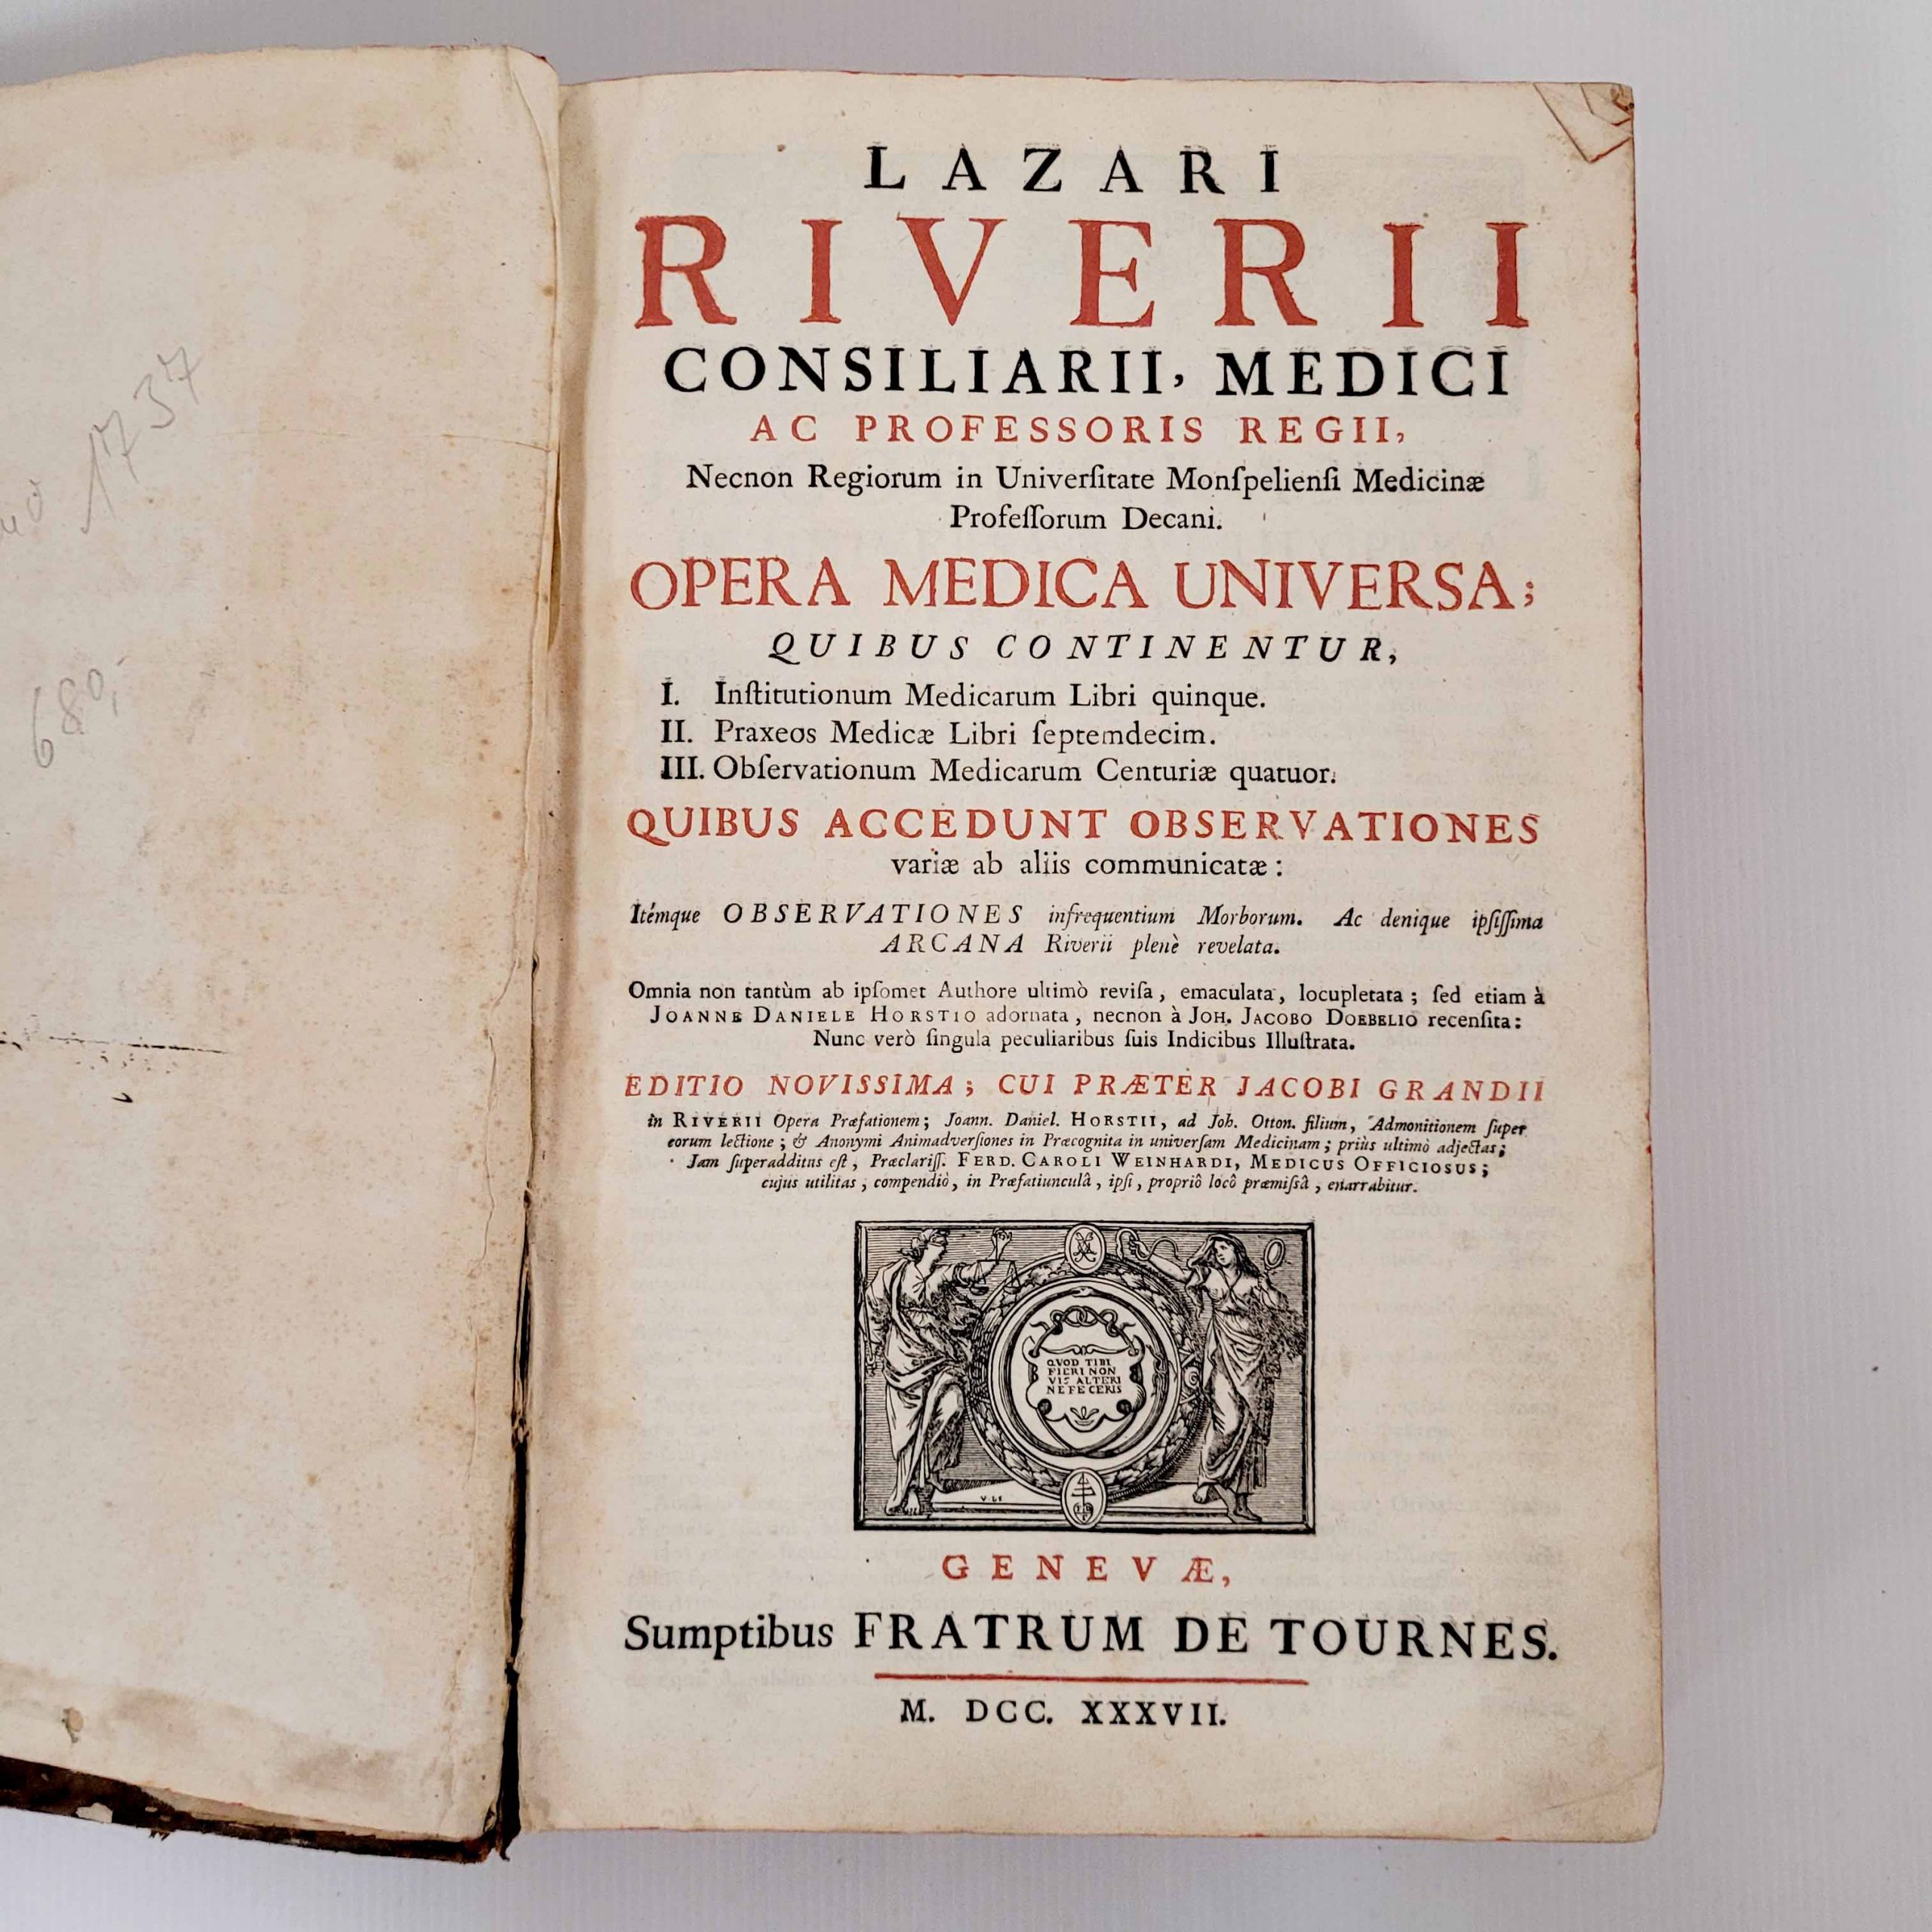 1737
680,-
LAZARI
RIVERII
CONSILIARII, MEDICI
AC PROFESSORIS REGII,
Necnon Regiorum in Univerſitate Monſpelienſi Medicinæ
Profeſſorum Decani.
OPERA MEDICA UNIVERSA;
QUIBUS CONTINENTUR,
I. Inſtitutionum Medicarum Libri quinque.
II. Praxeos Medicæ Libri ſeptemdecim.
III. Obſervationum Medicarum Centuriæ quatuor.
QUIBUS ACCEDUNT OBSERVATIONES
variæ ab aliis communicatæ :
Itémque OBSERVATIONES infrequentium Morborum. Ac denique ipſiſſima
ARCANA Riverii plenè revelata.
Omnia non tantùm ab ipſomet Authore ultimò reviſa, emaculata, locupletata ; ſed etiam à
JOANNE DANIELE HORSTIO adornata, necnon à JOH. JACOBO DOEBELIO recenſita :
Nunc verò ſingula peculiaribus ſuis Indicibus Illuſtrata.
EDITIO NOVISSIMA ; CUI PRÆTER JACOBI GRANDII
in RIVERII Opera Præfationem ; Joann. Daniel. HORSTII, ad Joh. Otton. filium, Admonitionem ſuper
eorum lectione ; & Anonymi Animadverſiones in Præcognita in univerſam Medicinam ; priùs ultimò adjectas ;
Jam ſuperadditus eſt, Præclariſſ. FERD. CAROLI WEINHARDI, MEDICUS OFFICIOSUS ;
cujus utilitas, compendiò, in Præfatiunculâ, ipſi, propriô locô præmiſsâ, enarrabitur.
QVOD TIBI
FIERI NON
VIS ALTERI
NE FECERIS
GENEVÆ,
Sumptibus FRATRUM DE TOURNES.
M. DCC. XXXVII.